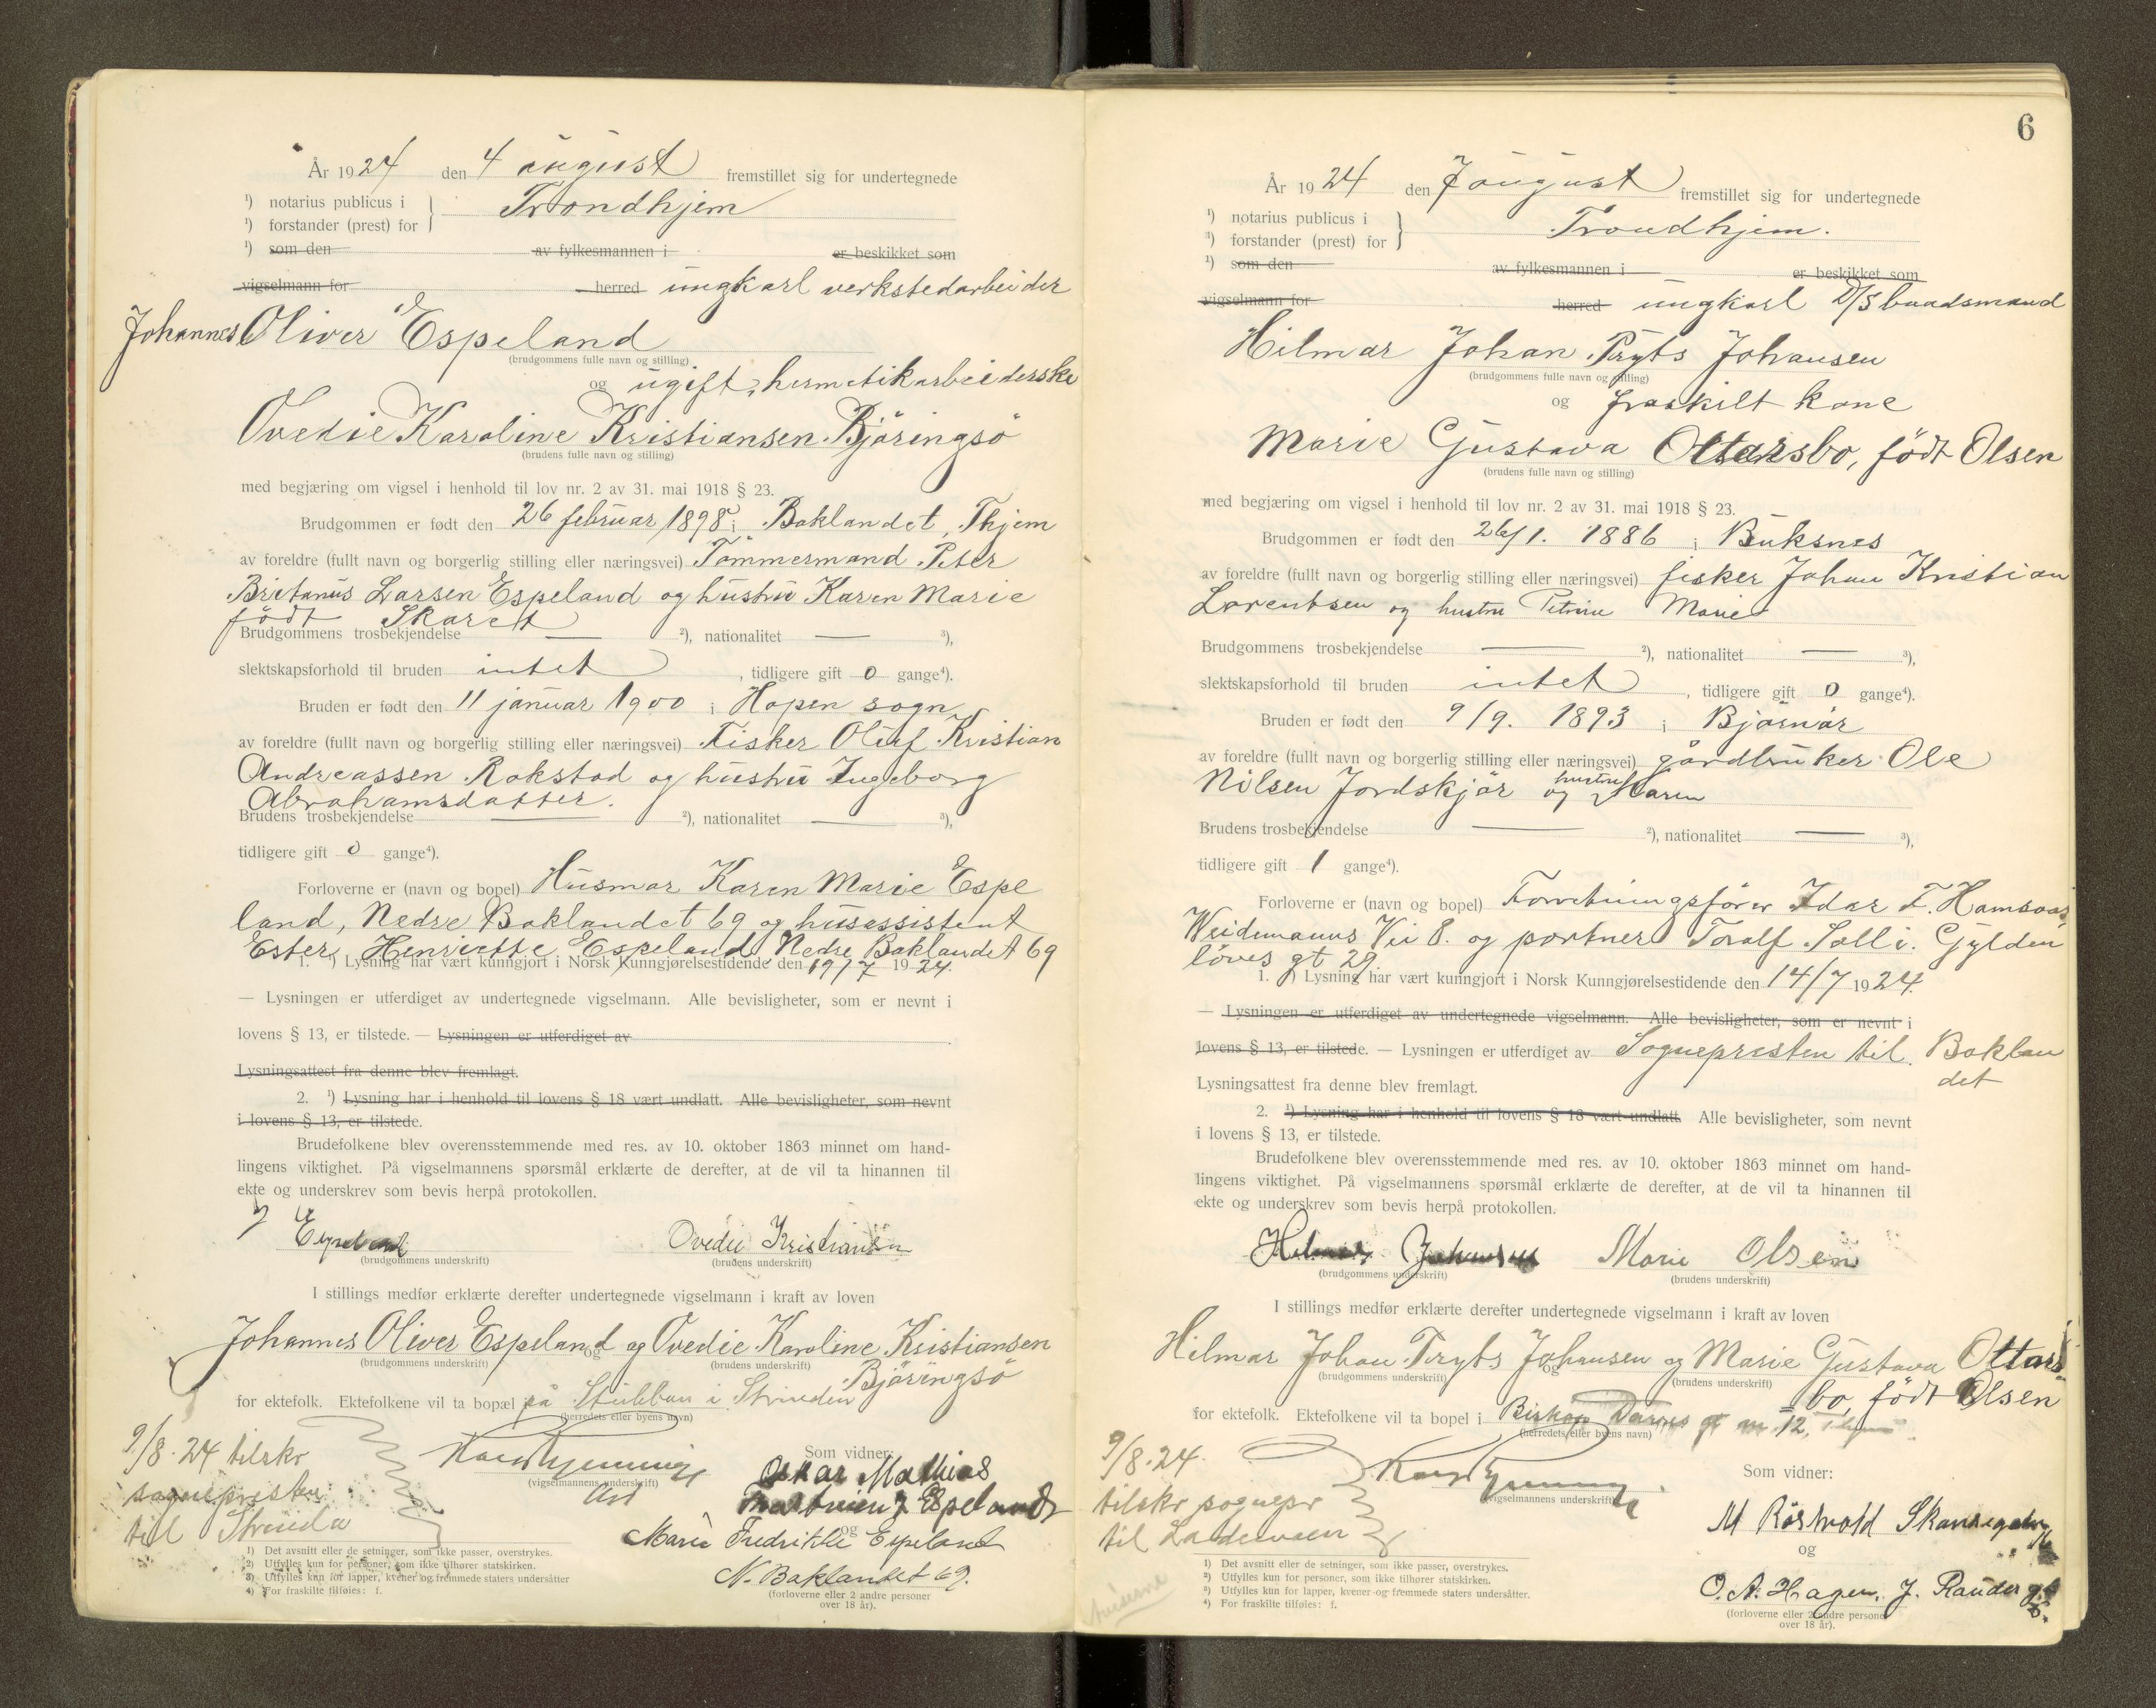 År 1924 den 4 august fremstillet sig for undertegnede
¹) notarius publicus i } Trondhjem
¹) forstander (prest) for
¹) som den av fylkesmannen i er beskikket som
vigselmann for herred ungkarl verkstedarbeider
Johannes Oliver Espeland
(brudgommens fulle navn og stilling)
og ugift, hermetikarbeiderske
Ovedie Karoline Kristiansen Björingsö
(brudens fulle navn og stilling)
med begjæring om vigsel i henhold til lov nr. 2 av 31. mai 1918 § 23.
Brudgommen er født den 26 februar 1898 i Baklandet, Thjem
av foreldre (fullt navn og borgerlig stilling eller næringsvei) Tömmermand Peter
Britanus Larsen Espeland og hustru Karen Marie
født Skaret
Brudgommens trosbekjendelse — ²), nationalitet — ³),
slektskapsforhold til bruden intet , tidligere gift 0 gange⁴).
Bruden er født den 11 januar 1900 i Hopen sogn
av foreldre (fullt navn og borgerlig stilling eller næringsvei) Fisker Oluf Kristian
Andreassen Rokstad og hustru Ingeborg
Abrahamsdatter.
Brudens trosbekjendelse — ²), nationalitet — ³),
tidligere gift 0 gange⁴).
Forloverne er (navn og bopel) Husmor Karen Marie Espe
land, Nedre Baklandet 69 og husassistent
Ester Henriette Espeland Nedre Baklandet 69
1. ¹) Lysning har vært kunngjort i Norsk Kunngjørelsestidende den 19/7 1924.
— Lysningen er utferdiget av undertegnede vigselmann. Alle bevisligheter, som er nevnt i
lovens § 13, er tilstede. — Lysningen er utferdiget av
Lysningsattest fra denne blev fremlagt.
2. ¹) Lysning har i henhold til lovens § 18 vært undlatt. Alle bevisligheter, som nevnt
i lovens § 13, er tilstede.
Brudefolkene blev overensstemmende med res. av 10. oktober 1863 minnet om hand-
lingens viktighet. På vigselmannens spørsmål erklærte de derefter, at de vil ta hinannen til
ekte og underskrev som bevis herpå protokollen.
J Espeland Ovedie Kristiansen
(brudgommens underskrift) (brudens underskrift)
I stillings medfør erklærte derefter undertegnede vigselmann i kraft av loven
Johannes Oliver Espeland og Ovedie Karoline Kristiansen
(brudgommens underskrift) og (brudens underskrift)
Björingsö
for ektefolk. Ektefolkene vil ta bopæl på Stubban i Strinden
(herredets eller byens navn)
9/8.24 tilskr
sognepresten
til Strinda
(vigselmannens underskrift)
Som vidner:
Oskar Mathias
Espeland
og
Marie Fredrikke Espeland
N. Baklandet 69.
(forloverne eller 2 andre personer
over 18 år).
1) Det avsnitt eller de setninger, som ikke passer, overstrykes.
2) Utfylles kun for personer, som ikke tilhører statskirken.
3) Utfylles kun for lapper, kvener og fremmede staters undersåtter
4) For fraskilte tilføies: f.
6
År 1924 den 7 august fremstillet sig for undertegnede
¹) notarius publicus i } Trondhjem.
¹) forstander (prest) for
¹) som den av fylkesmannen i er beskikket som
vigselmann for herred ungkarl D/S baadsmand
Hilmar Johan Pryts Johansen
(brudgommens fulle navn og stilling)
og fraskilt kone
Marie Gustava Ottersbo, født Olsen
(brudens fulle navn og stilling)
med begjæring om vigsel i henhold til lov nr. 2 av 31. mai 1918 § 23.
Brudgommen er født den 26/1. 1886 i Buksnes
av foreldre (fullt navn og borgerlig stilling eller næringsvei) fisker Johan Kristian
Lorentsen og hustru Petrine Marie
Brudgommens trosbekjendelse — ²), nationalitet — ³),
slektskapsforhold til bruden intet , tidligere gift 0 gange⁴).
Bruden er født den 9/9. 1893 i Bjørnør
av foreldre (fullt navn og borgerlig stilling eller næringsvei) gårdbruker Ole
Nilsen Jordskjär og hustru Karen
Brudens trosbekjendelse — ²), nationalitet — ³),
tidligere gift 1 gange⁴).
Forloverne er (navn og bopel) Forretningsfører Idar F. Hamsaas
Weidemanns Vei 8. og portner Toralf Solli. Gylden
löves gt 29
1. ¹) Lysning har vært kunngjort i Norsk Kunngjørelsestidende den 14/7 1924.
— Lysningen er utferdiget av undertegnede vigselmann. Alle bevisligheter, som er nevnt i
lovens § 13, er tilstede. — Lysningen er utferdiget av Sognepresten til Baklan
det
Lysningsattest fra denne blev fremlagt.
2. ¹) Lysning har i henhold til lovens § 18 vært undlatt. Alle bevisligheter, som nevnt
i lovens § 13, er tilstede.
Brudefolkene blev overensstemmende med res. av 10. oktober 1863 minnet om hand-
lingens viktighet. På vigselmannens spørsmål erklærte de derefter, at de vil ta hinannen til
ekte og underskrev som bevis herpå protokollen.
Hilmar Johansen Marie Olsen
(brudgommens underskrift) (brudens underskrift)
I stillings medfør erklærte derefter undertegnede vigselmann i kraft av loven
Hilmar Johan Pryts Johansen og Marie Gustava Otters-
(brudgommens underskrift) og (brudens underskrift)
bo, født Olsen
for ektefolk. Ektefolkene vil ta bopel i Biskop Darres gt nr 12,
(herredets eller byens navn)
9/8.24.
tilskr sognepr
til Lademoen
(vigselmannens underskrift)
Som vidner:
M Röstvold
og
O. A. Hagen, J.
(forloverne eller 2 andre personer
over 18 år).
1) Det avsnitt eller de setninger, som ikke passer, overstrykes.
2) Utfylles kun for personer, som ikke tilhører statskirken.
3) Utfylles kun for lapper, kvener og fremmede staters undersåtter.
4) For fraskilte tilføies: f.